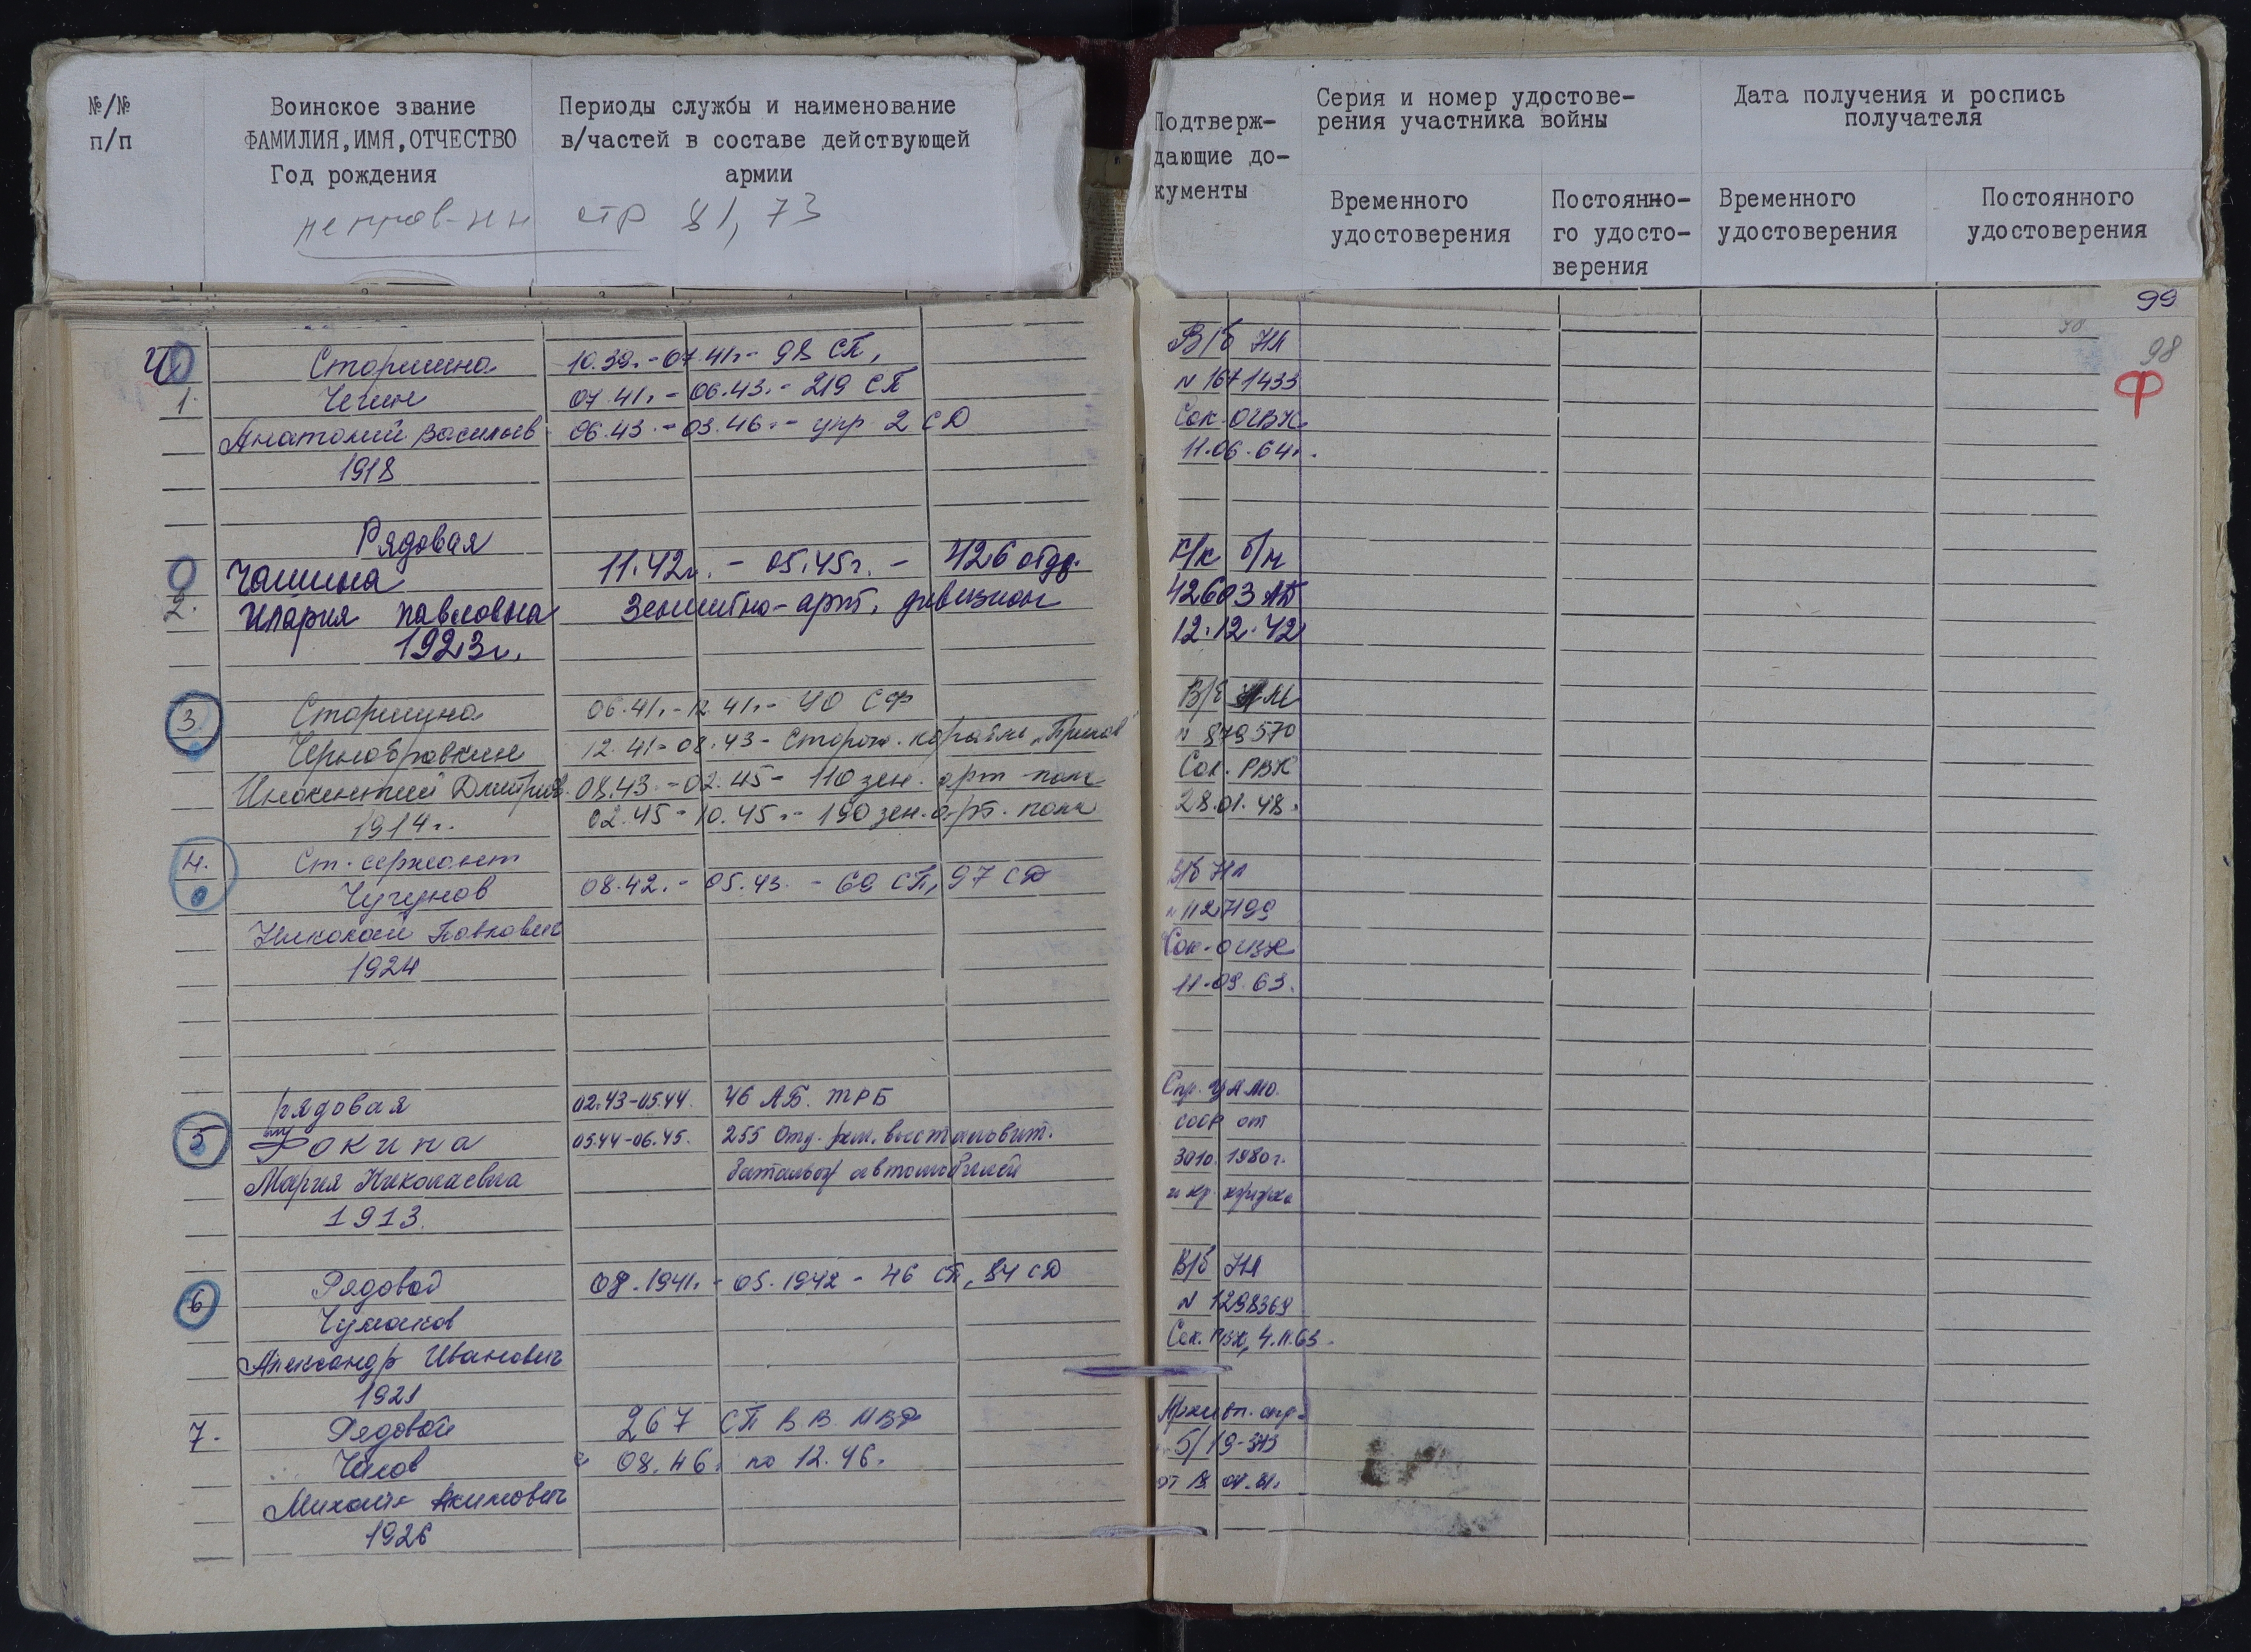 №/№
п/п
Воинское звание
ФАМИЛИЯ,ИМЯ,ОТЧЕСТВО
Год рождения
Периоды службы и наименование
в/частей в составе действующей
армии
стр 81, 73
Подтверж-
дающие до-
кументы
Серия и номер удостове-
рения участника войны
Временного
удостоверения
Постоянно-
го удосто-
верения
Дата получения и роспись
получателя
Временного
удостоверения
Постоянного
удостоверения
99
98
Ф
Ч
1.
Старшина
Чегин
Анатолий Васильев
1918
10.39. - 07.41г. - 98 СП,
07.41г. - 06.43. - 219 СП
06.43. - 03.46. - упр. 2 СД
В/б НЛ
N 1671433
Сок. ОГВК
11.06.64г.
2.
Рядовая
Чашина
Мария Павловна
1923г.
11.42г. - 05.45г. - 426 отд.
Зенитно-арт. дивизион
К/к б/н
42603 АБ
12.12.42
3
Старшина
Чернобровкин
Инокентий Дмитриев.
1914г.
06.41г. - 12.41г. - ЧО СФ
12.41 - 08.43 - Сторож. корабль
08.43. - 02.45 - 110 зен. арт. полк
02.45 - 10.45г. - 190 зен. арт. полк
N 879570
Сок. РВК
28.01.48.
4.
Ст. сержант
Чугунов
Николай Павлович
1924
08.42. - 05.43. - 69 СП, 97 СД
В/б НЛ
Сок. ОГВК
11.09.63.
5
рядовая
Фокина
Мария Николаевна
1913.
02.43-05.44. 46 АБ. ТРБ
05.44-06.45. 255 Отд. рем. восстановит.
батальон автомобилей
Спр. ЦАМО.
СССР от
30.10. 1980г.
6
Рядовой
Чумаков
Александр Иванович
1921
08.1941г. - 05.1942 - 46 СП, 84 СД
В/б НЛ
N 1298369
Сок. РВК, 4.11.63.
7.
Рядовой
Чалов
Михаил Акимович
1926
267 СП В.В. МВД
с 08.46. по 12.46.
Архивн. спр.